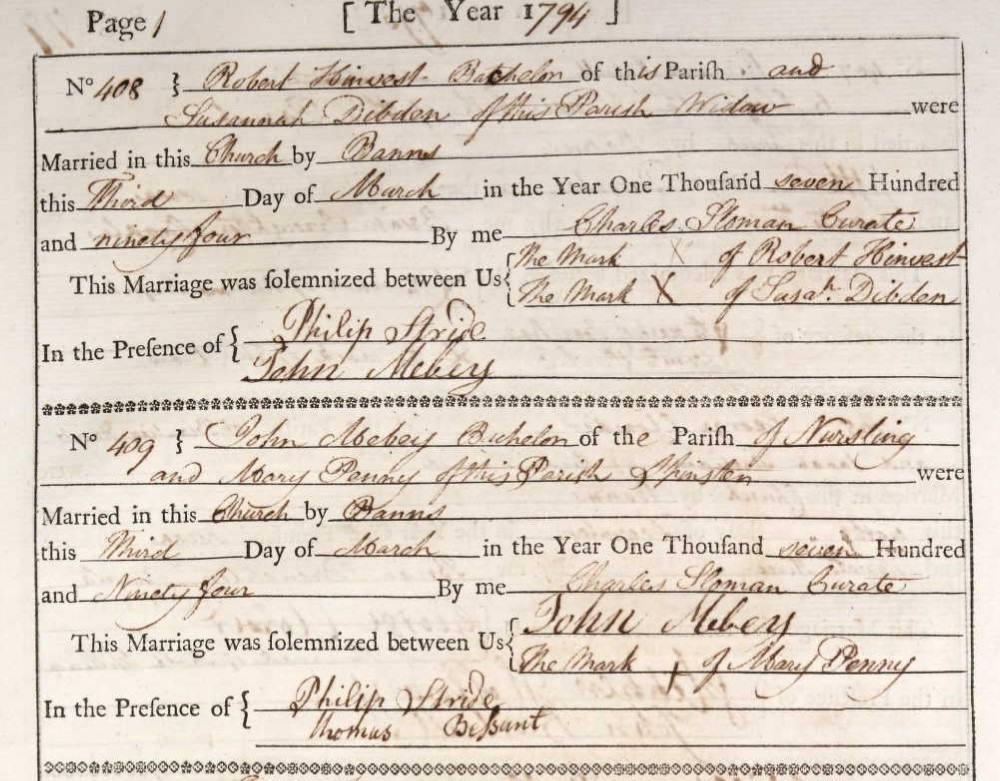 Page 1 [ The Year 1794 ]
No 408 } Robert Hinvest Batchelor of this Parish and
Susannah Dibden of this Parish Widow were
Married in this Church by Banns
this Third Day of March in the Year One Thousand seven Hundred
and ninety four By me Charles Sloman Curate
This Marriage was solemnized between Us { The Mark X of Robert Hinvest
The Mark X of Susah. Dibden
In the Presence of { Philip Stride
John Mebey
No 409 } John Mebey Bachelor of the Parish of Nursling
and Mary Penny of this Parish Spinster were
Married in this Church by Banns
this Third Day of March in the Year One Thousand seven Hundred
and Ninety four By me Charles Sloman Curate
This Marriage was solemnized between Us { John Mebey
The Mark of Mary Penny
In the Presence of { Philip Stride
Thomas Bessant